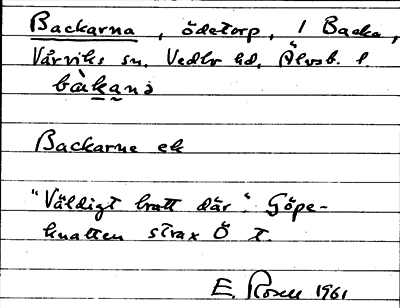 Backarna, ödetorp, 1 Backa,
Vårviks sn. Vedbo hd. Älvsb. l.
bàkaṇa
Backarne ek
"Väldigt bratt där". Göpe-
knatten strax Ö t.
E. Rosell 1961